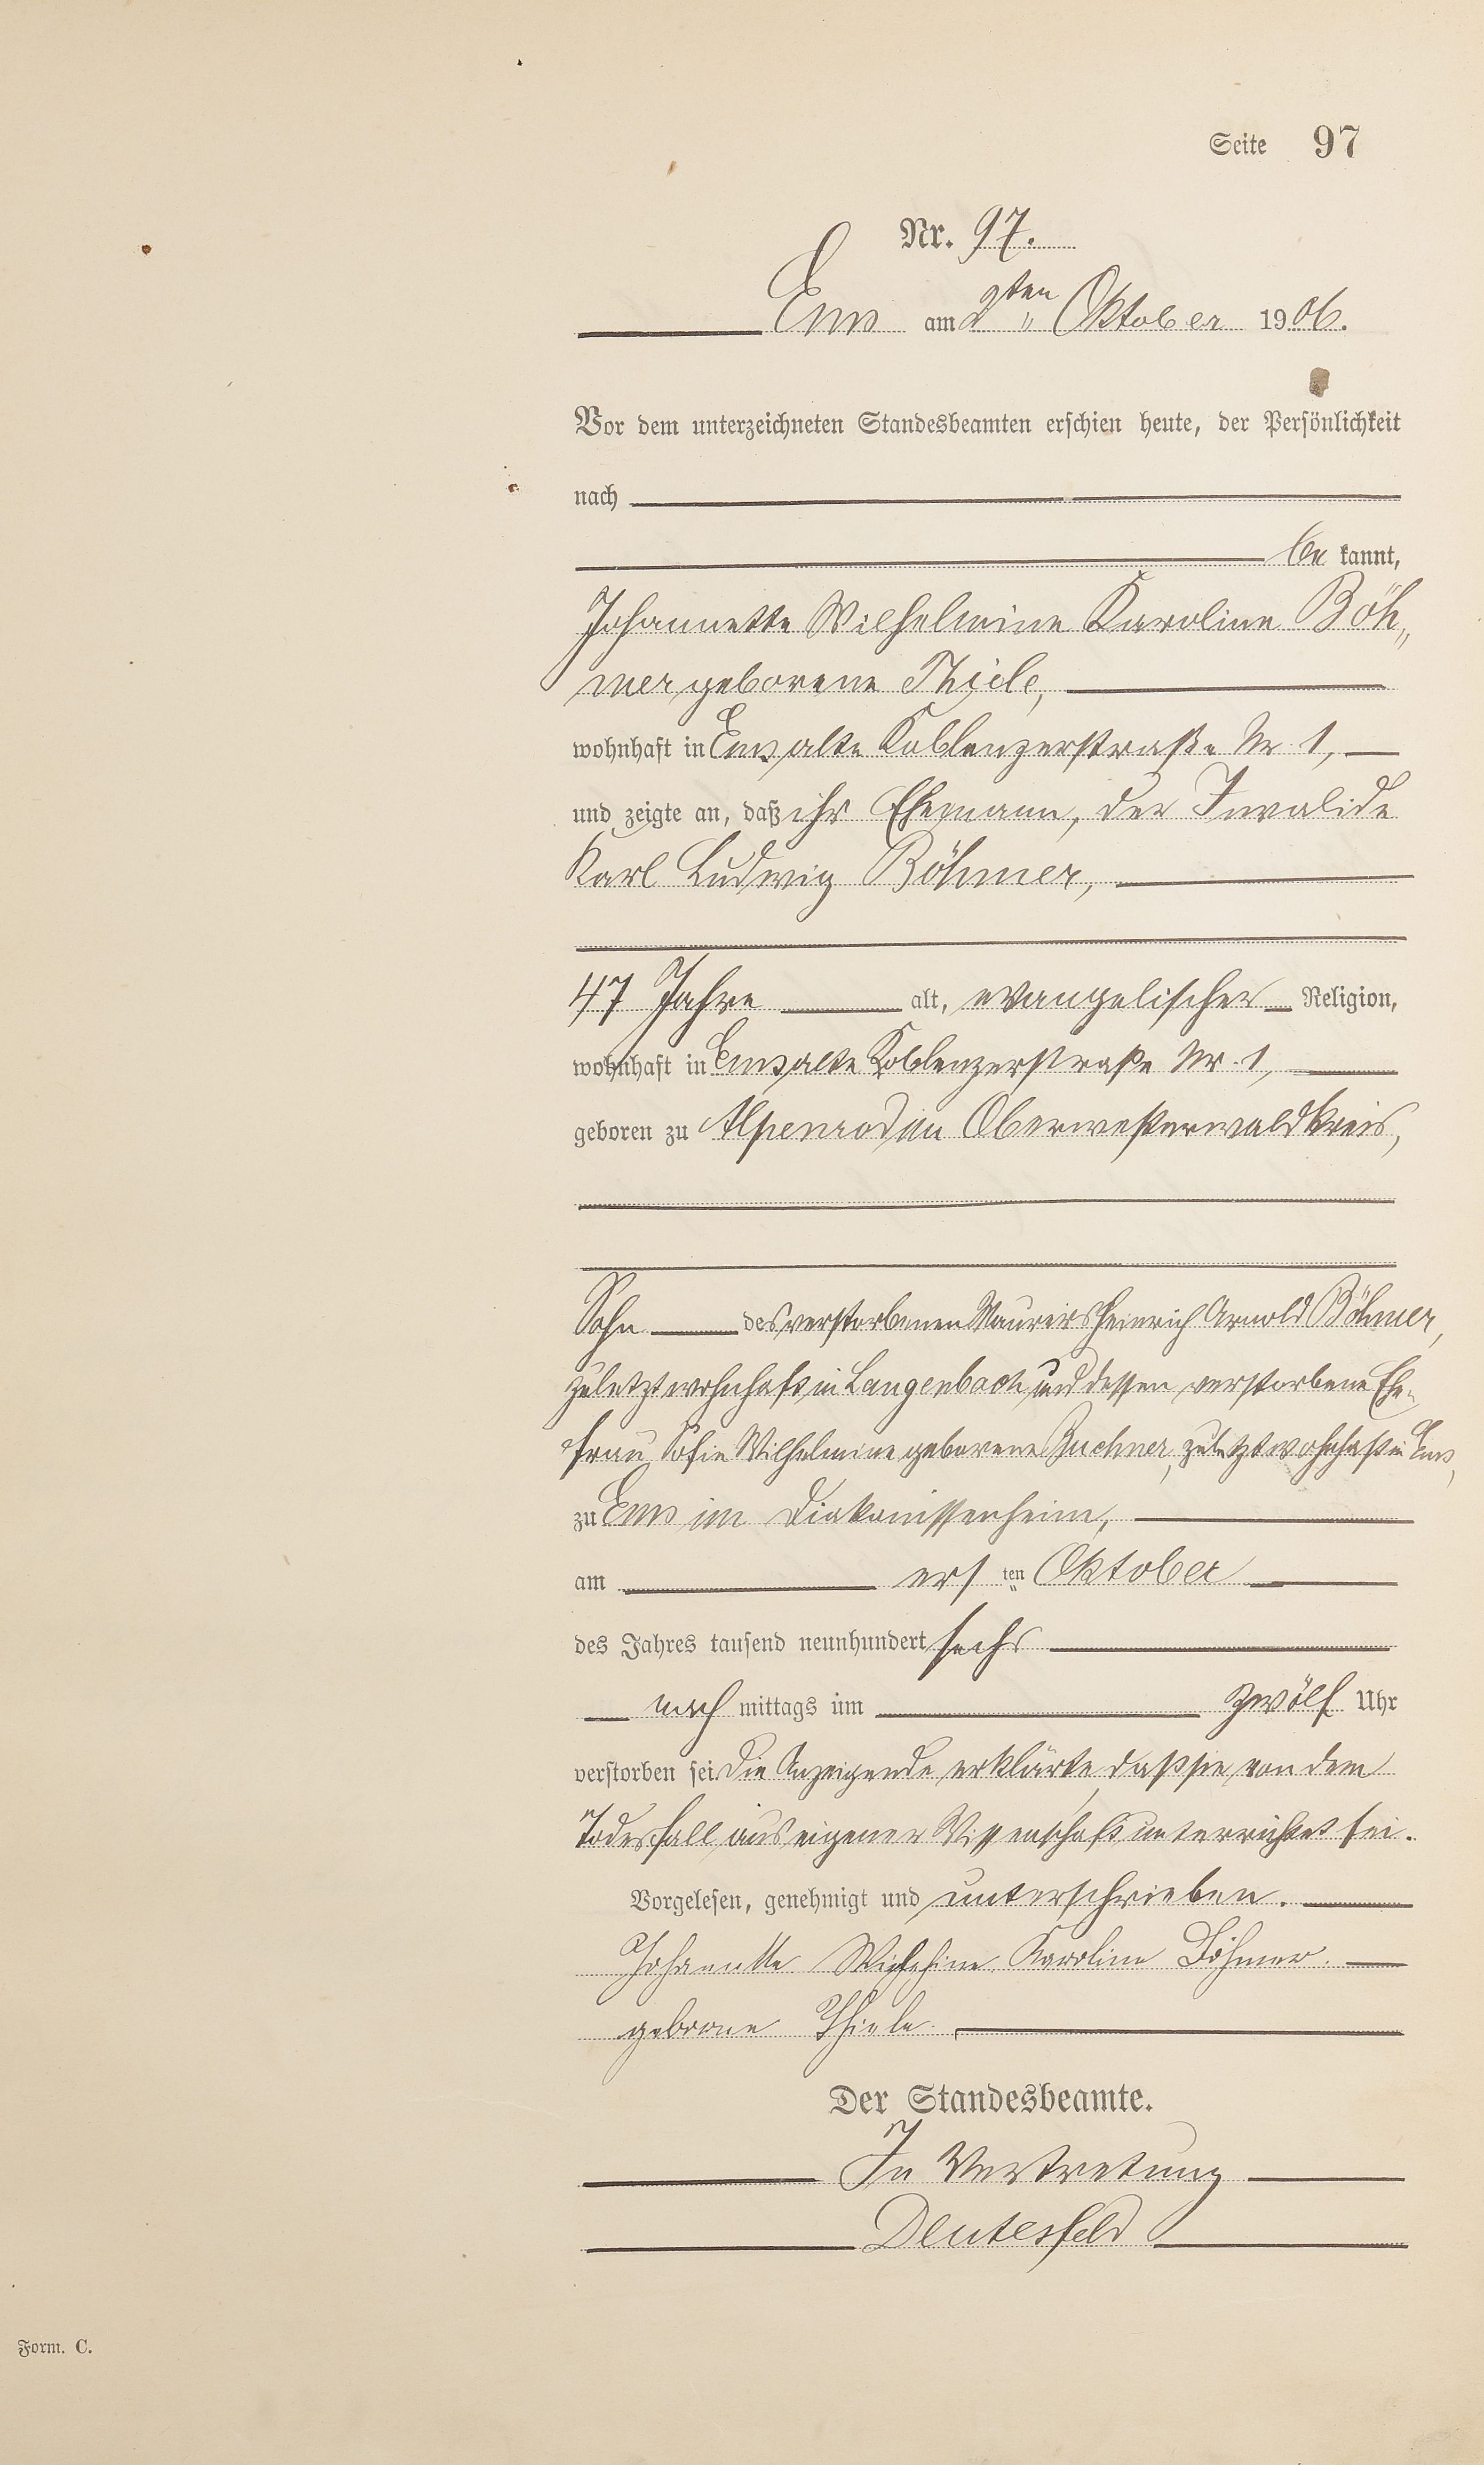 Seite 97
Nr. 97.
Ems am 2ten Oktober 1906.
Vor dem unterzeichneten Standesbeamten erschien heute, der Persönlichkeit
nach
be kannt,
Johannette Wilhelmine Karoline Böh„
mer geborene Thiele,
wohnhaft in Ems, alte Koblenzerstraße Nr. 1,
und zeigte an, daß ihr Ehemann, der Invalide
Karl Ludwig Böhmer,
47 Jahre alt, evangelischer Religion,
wohnhaft in Ems, alte Koblenzerstraße Nr. 1,
geboren zu Alpenrod im Oberwesterwaldkreis,
Sohn des verstorbenen Maurers Heinrich Arnold Böhmer,
zuletzt wohnhaft in Langenbach und dessen verstorbene Ehe-
frau Sofie Wilhelmine geborene Buchner, zuletzt wohnhaft in Ems,
zu Ems im Diakonissenheim,
am ersten Oktober
des Jahres tausend neunhundert sechs
nach mittags um zwölf Uhr
verstorben sei. Die Anzeigende erklärte, daß sie von dem
Todesfall aus eigener Wissenschaft unterrichtet sei.
Vorgelesen, genehmigt und unterschrieben.
Karoline Böhmer.
geborne Thiele.
Der Standesbeamte.
In Vertretung
Deutesfeld
Form. C.